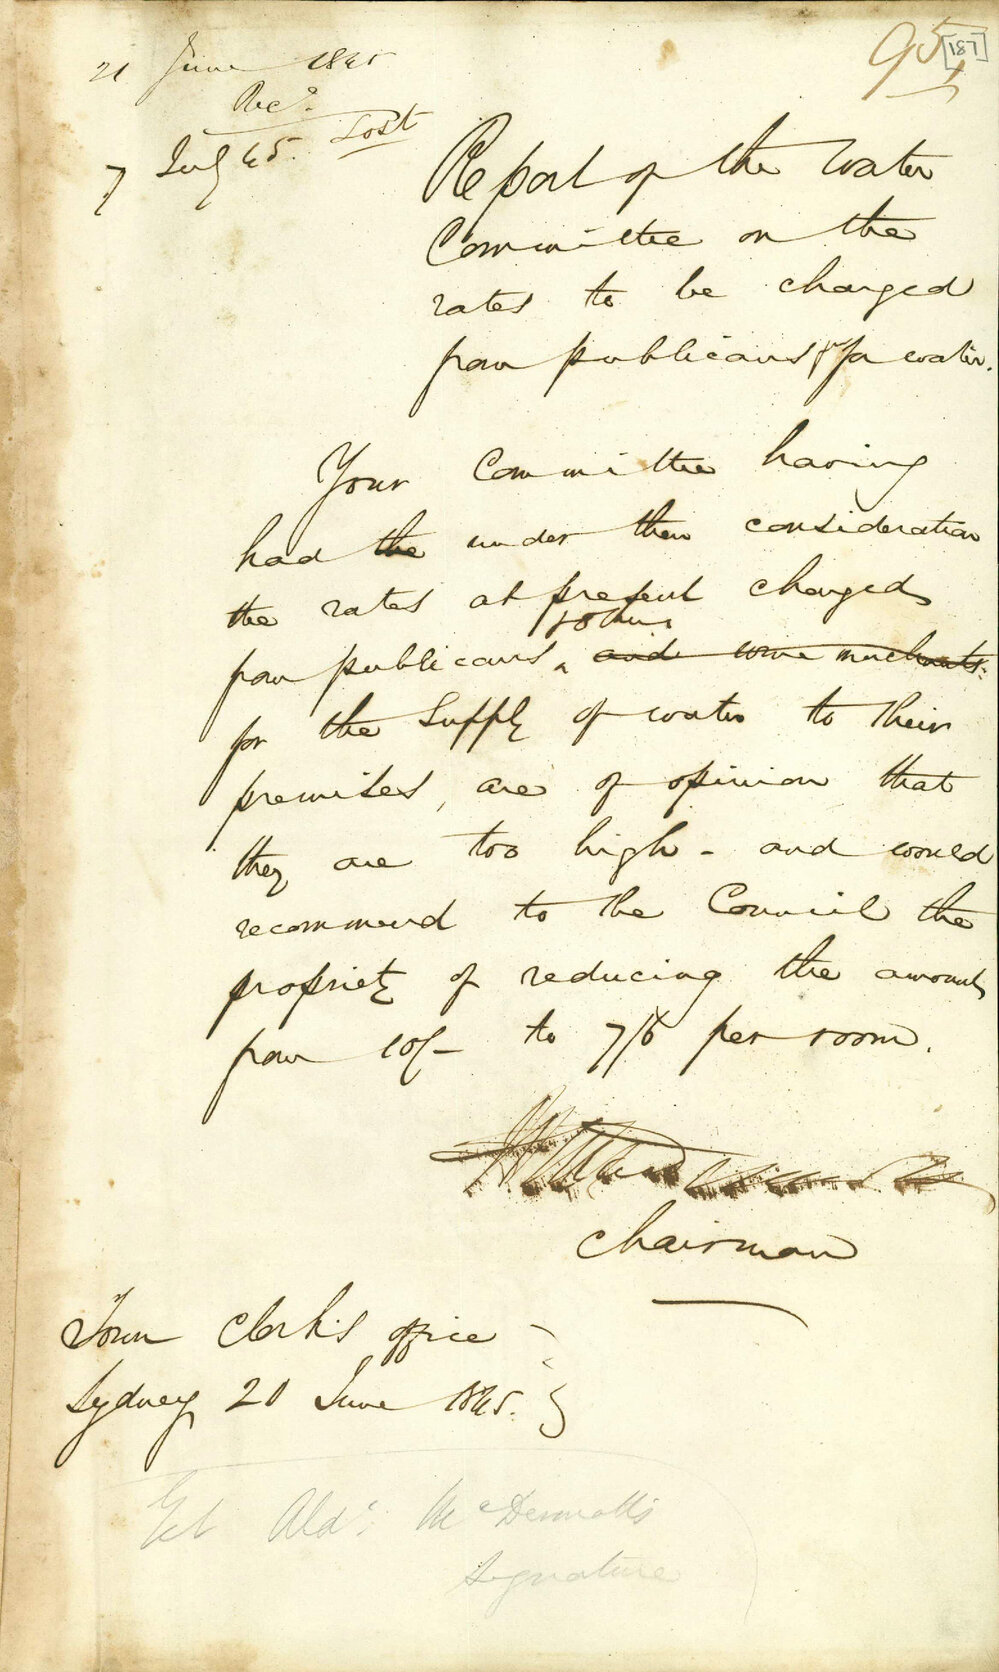 95
187
21 June 1845
Recd.
7 July 45. Lost
Report of the Water
Committee on the
rates to be charged
from publicans for water.
Your Committee having
had the under their consideration
the rates at present charged
from publicans, and some merchants
for the Supply of water to their
premises, are of opinion that
they are too high - and would
recommend to the Council the
propriety of reducing the amount
from 10/- to 7/6 per room.
Chairman
Town Clerk's office
Sydney 20 June 1845.
Get Ald. McDermott's
signature